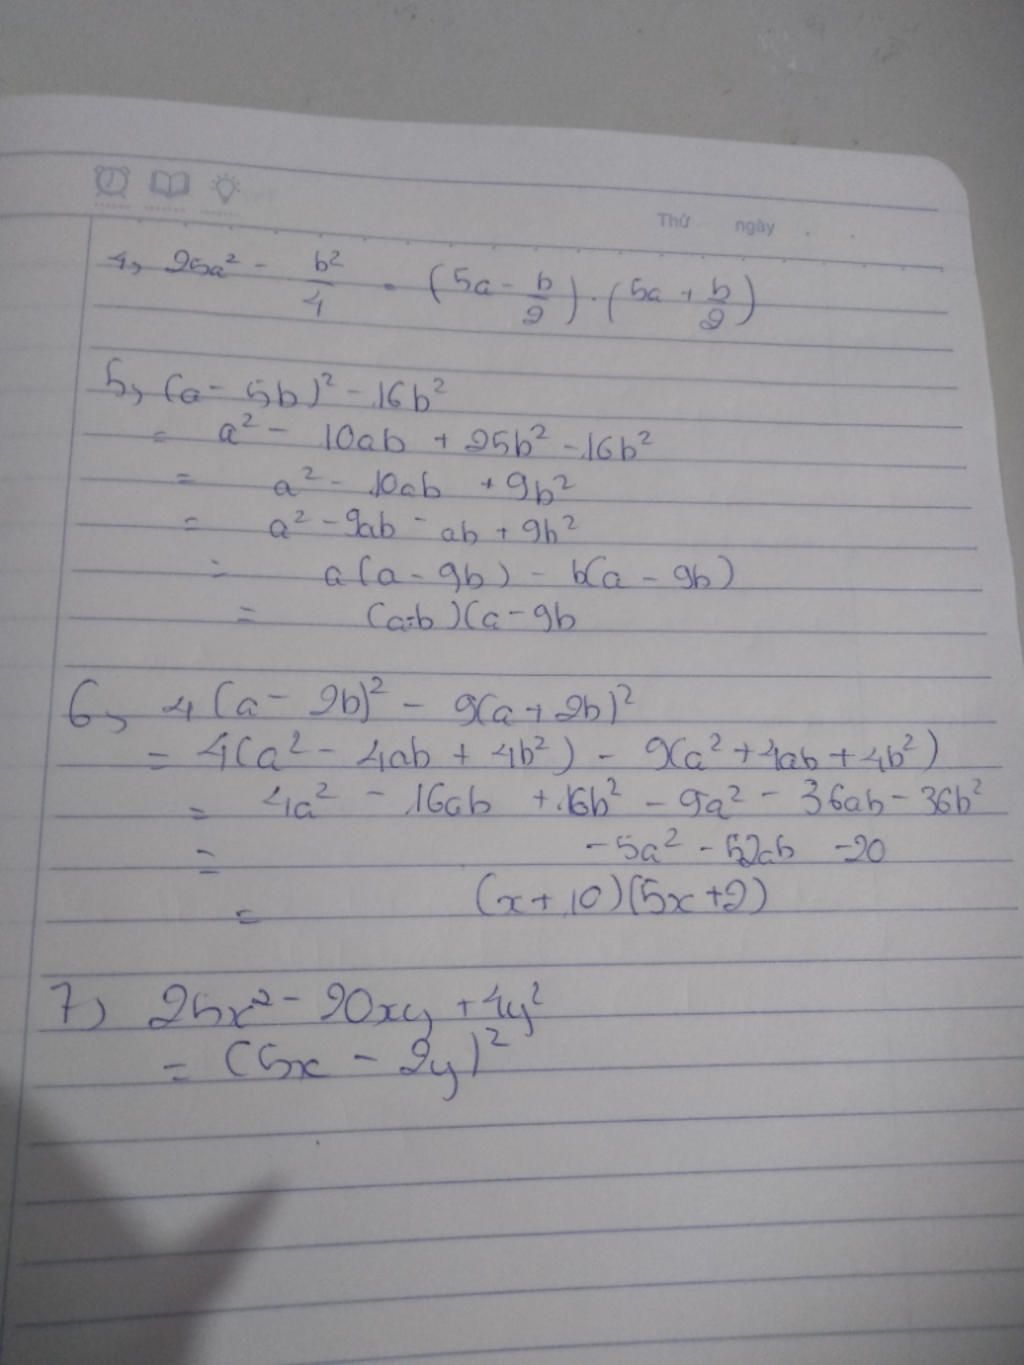 Thứ ngày . .
4, 25a² - b²/4 = (5a - b/2) . (5a + b/2)
5, (a - 5b)² - 16b²
= a² - 10ab + 25b² - 16b²
= a² - 10ab + 9b²
= a² - 9ab - ab + 9b²
= a(a - 9b) - b(a - 9b)
= (a-b)(a - 9b
6, 4(a - 2b)² - 9(a + 2b)²
= 4(a² - 4ab + 4b²) - 9(a² + 4ab + 4b²)
= 4a² - 16ab + 16b² - 9a² - 36ab - 36b²
= -5a² - 52ab - 20
= (x + 10)(5x + 2)
7, 25x² - 20xy + 4y²
= (5x - 2y)²